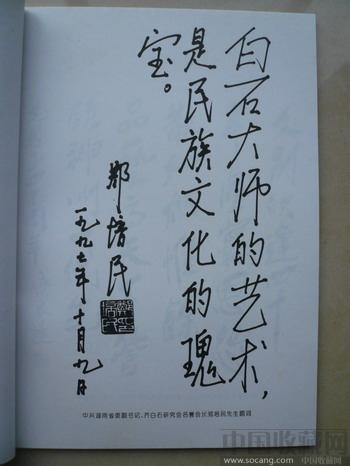 白石大师的艺术，
是民族文化的瑰
宝。
郑培民
一九九七年十月九日
中共湖南省委副书记、齐白石研究会名誉会长郑培民先生题词
中国收藏网
www.socang.com 中国收藏网